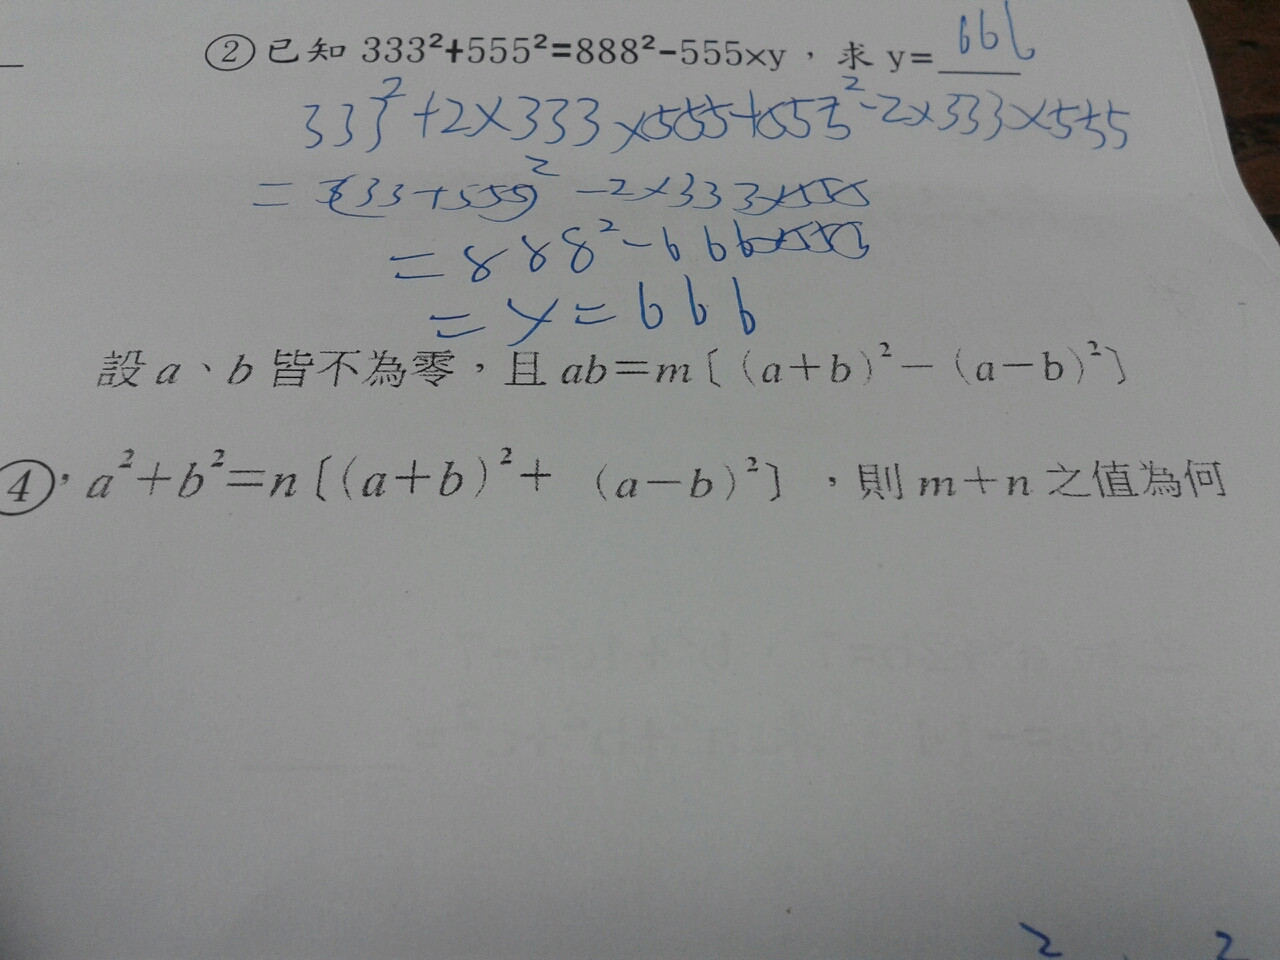 ② 已知 333²+555²=888²-555×y，求 y= 666
333²+2×333×555+555²-2×333×555
= (333+555)² -2×333×555
= 888² - 666×555
= y = 666
設 a、b 皆不為零，且 ab=m〔（a+b）²－（a－b）²〕
④，a²+b²=n〔（a+b）²+（a－b）²〕，則 m+n 之值為何
2 2